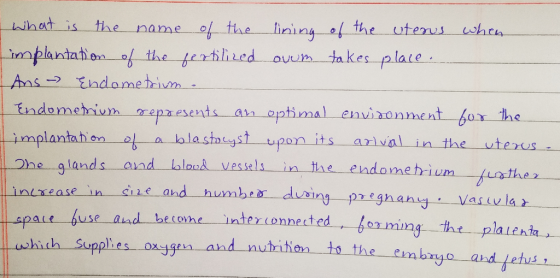 what is the name of the lining of the uterus when
implantation of the fertilized ovum takes place.
Ans → Endometrium.
Endometrium represents an optimal environment for the
implantation of a blastocyst upon its arival in the uterus.
The glands and blood vessels in the endometrium further
increase in size and number during pregnancy. Vascular
space fuse and become interconnected, forming the placenta,
which supplies oxygen and nutrition to the embryo and fetus.